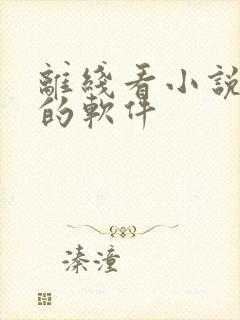 離綫看小說
的軟件
溱潼